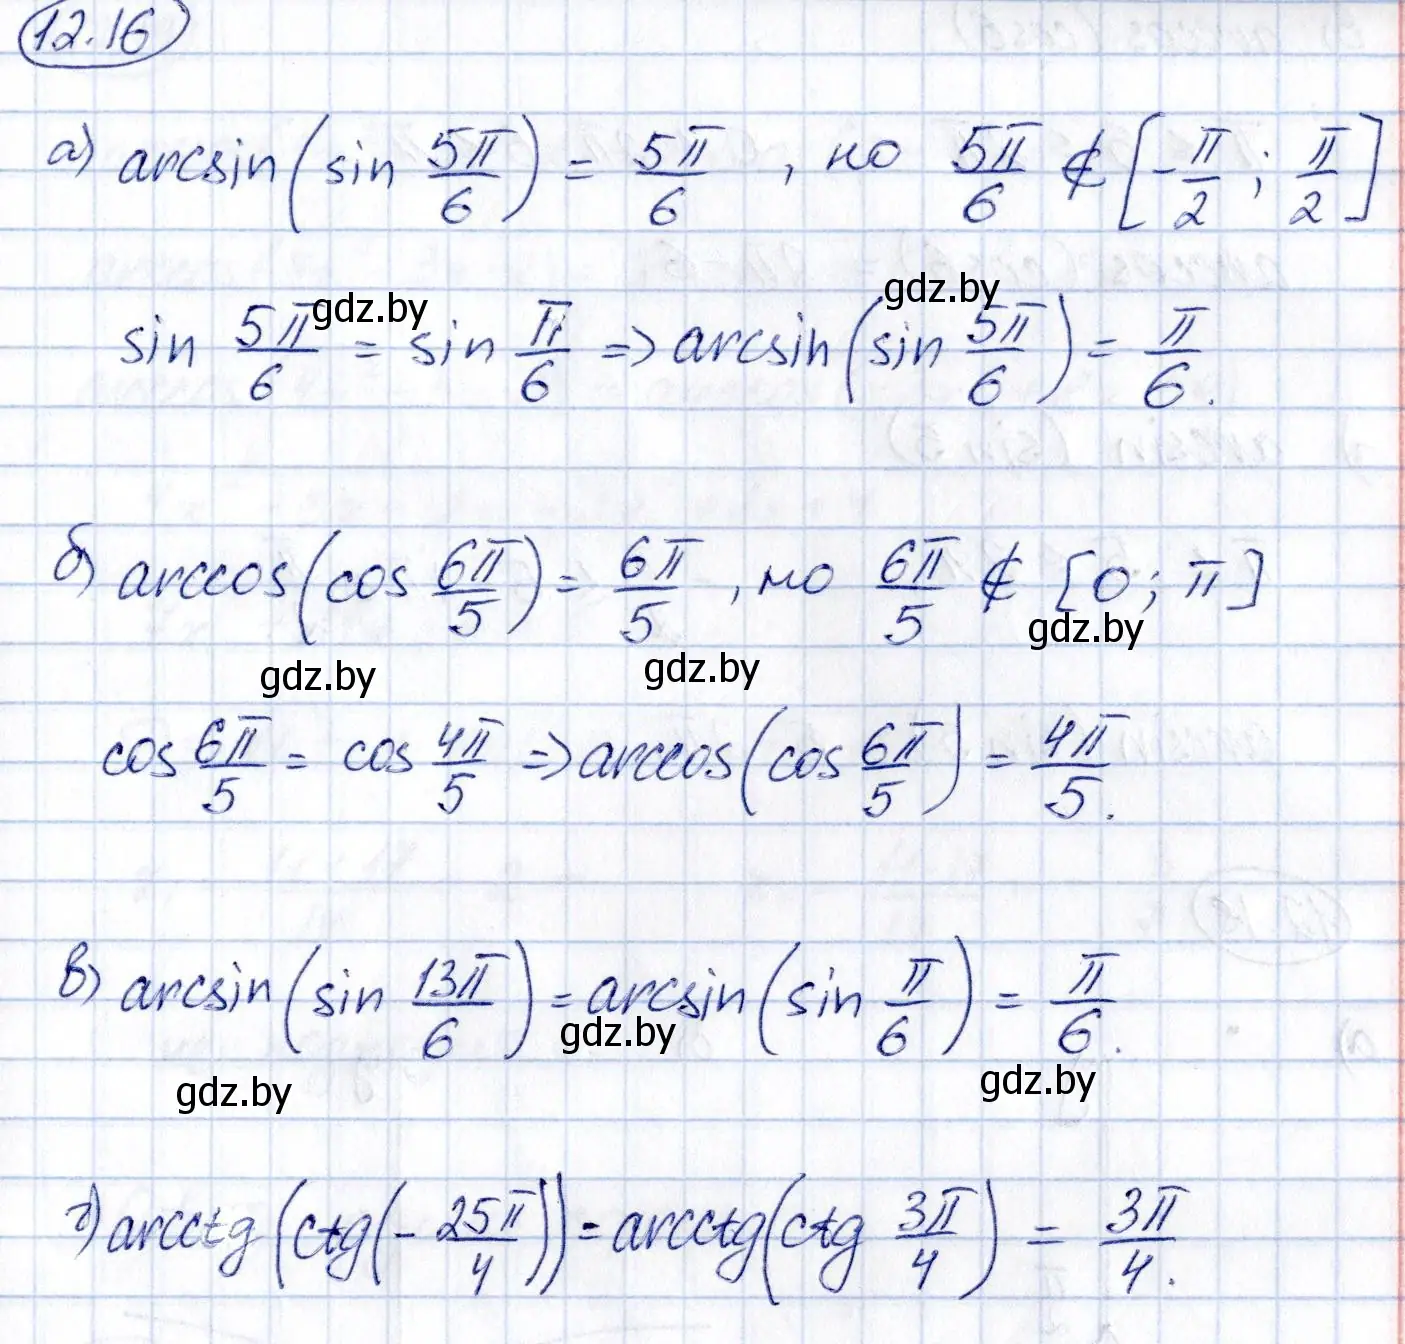 12.16
а) arcsin(sin 5π/6) = 5π/6, но 5π/6 ∉ [-π/2; π/2]
gdz.by gdz.by
sin 5π/6 = sin π/6 => arcsin(sin 5π/6) = π/6.
б) arccos(cos 6π/5) = 6π/5, но 6π/5 ∉ [0; π]
gdz.by gdz.by gdz.by
cos 6π/5 = cos 4π/5 => arccos(cos 6π/5) = 4π/5.
в) arcsin(sin 13π/6) = arcsin(sin π/6) = π/6.
gdz.by gdz.by gdz.by
г) arcctg(ctg(-25π/4)) = arcctg(ctg 3π/4) = 3π/4.